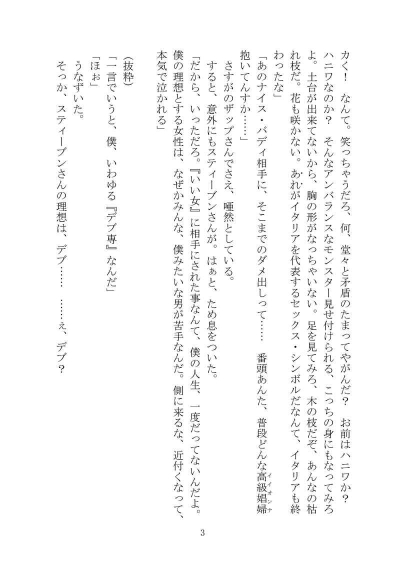 カく！　なんて。笑っちゃうだろ、何、堂々と矛盾のたまってやがんだ？　お前はハニワか？
ハニワなのか？　そんなアンバランスなモンスター見せ付けられる、こっちの身にもなってみろ
よ。土台が出来てないから、胸の形がなっちゃいない。足を見てみろ、木の枝だぞ、あんなの枯
れ枝だ。花も咲かない。あれがイタリアを代表するセックス・シンボルだなんて、イタリアも終
わったな」
「あのナイス・バディ相手に、そこまでのダメ出しって……　番頭あんた、普段どんな高級娼婦
イイオンナ
抱いてんすか……」
さすがのザップさんでさえ、唖然としている。
すると、意外にもスティーブンさんが。はぁと、ため息をついた。
「だから、いっただろ。『いい女』に相手にされた事なんて、僕の人生、一度だってないんだよ。
僕の理想とする女性は、なぜかみんな、僕みたいな男が苦手なんだ。側に来るな、近付くなって、
本気で泣かれる」
（抜粋）
「一言でいうと、僕、いわゆる『デブ専』なんだ」
「ほぉ」
うなずいた。
そっか、スティーブンさんの理想は、デブ……　……ぇ、デブ？
3